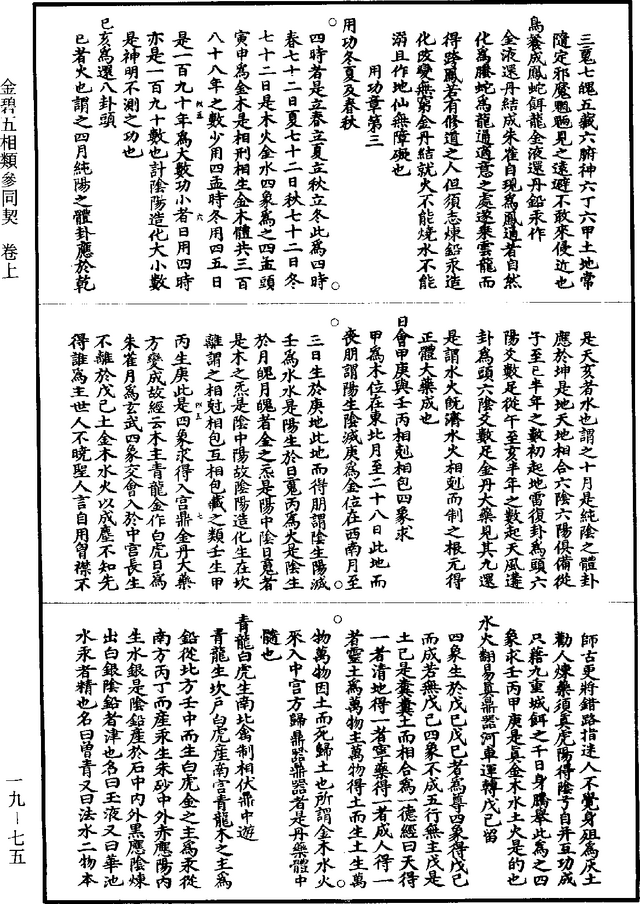 金碧五相類參同契　卷上
三䰟七魄五藏六腑神六丁六甲土地常
隨定邪魔魍魎見之遠避不敢來侵近也
烏養成鳳蛇餌龍金液還丹鉛汞作
金液還丹結成朱雀自現爲鳳過者自然
化爲騰蛇爲龍通過意之處遂乘雲龍而
得路鳳若有修道之人但須志煉鉛汞造
化改變無窮金丹結就火不能燒水不能
溺且作地仙無障礙也
用功章第三
用功冬夏及春秋
四時者是立春立夏立秋立冬此爲四時
春七十二日夏七十二日秋七十二日冬
七十二日是木火金水四象爲之四孟頭
寅申爲金木是相刑相生金木體共三百
八十八年之數少用四孟時冬用四五日
是一百九十年爲大數功小者日用四時
亦是一百九十數也計陰陽造化大小數
是神明不測之功也
巳亥爲還八卦頭
巳者火也謂之四月純陽之體卦應於乾
是天亥者水也謂之十月是純陰之體卦
應於坤是地天地相合六陰六陽俱備從
子至巳半年之數初起地雷復卦爲頭六
陽爻數足從午至亥半年之數起天風遘
卦爲頭六陰爻數足金丹大藥見其九還
是謂水火旣濟水火相剋而制之根元得
正體大藥成也
日會甲庚與壬丙相剋相包四象求
甲爲木位在東北月至二十八日此地而
喪朋謂陽生陰滅庚爲金位在西南月至
三日生於庚地此地而得朋謂陰生陽滅
壬爲水水是陽生於日䰟丙爲火是陰生
於月魄月魄者金之炁是陽中陰日䰟者
是木之炁是陰中陽故陰陽造化生在坎
離謂之相尅相包互相包藏之類壬生甲
丙生庚此是四象求得入宫鼎金丹大藥
方變成故經云木主青龍金作白虎日爲
朱雀月爲玄武四象交會入於中宫長生
不離於戊己土金木水火以成塵不知先
得誰爲主世人不曉聖人言自用胷襟不
師古更將錯路指迷人不覺身殂爲灰土
勸人煉藥須真虎陽得陰兮自并互功成
只藉九重城餌之千日身騰舉此爲之四
象求壬丙甲庚是真金木水土火是的也
水火翻易真鼎器河車運轉戊己留
四象生於戊己戊己者爲尊四象得戊己
而成若無戊己四象不成五行無主戊是
土己是囊囊土而相合爲一德經曰天得
一者清地得一者寧藥得一者成人得一
者靈土爲萬物主萬物得土而生土生萬
物萬物因土而死歸土也所謂金木水火
來入中宫方歸鼎器鼎器者是丹藥體中
髓也
青龍白虎生南北禽制相伏鼎中遊
青龍生坎戶白虎産南宫青龍木之主爲
鉛從北方壬中而生白虎金之主爲汞從
南方丙丁而産汞生朱砂中外赤應陽内
生水銀是陰鉛産於石中内外黑應陰煉
出白銀陰鉛者津也名曰玉液又曰華池
水汞者精也名曰曾青又曰法水二物本
一九－七五